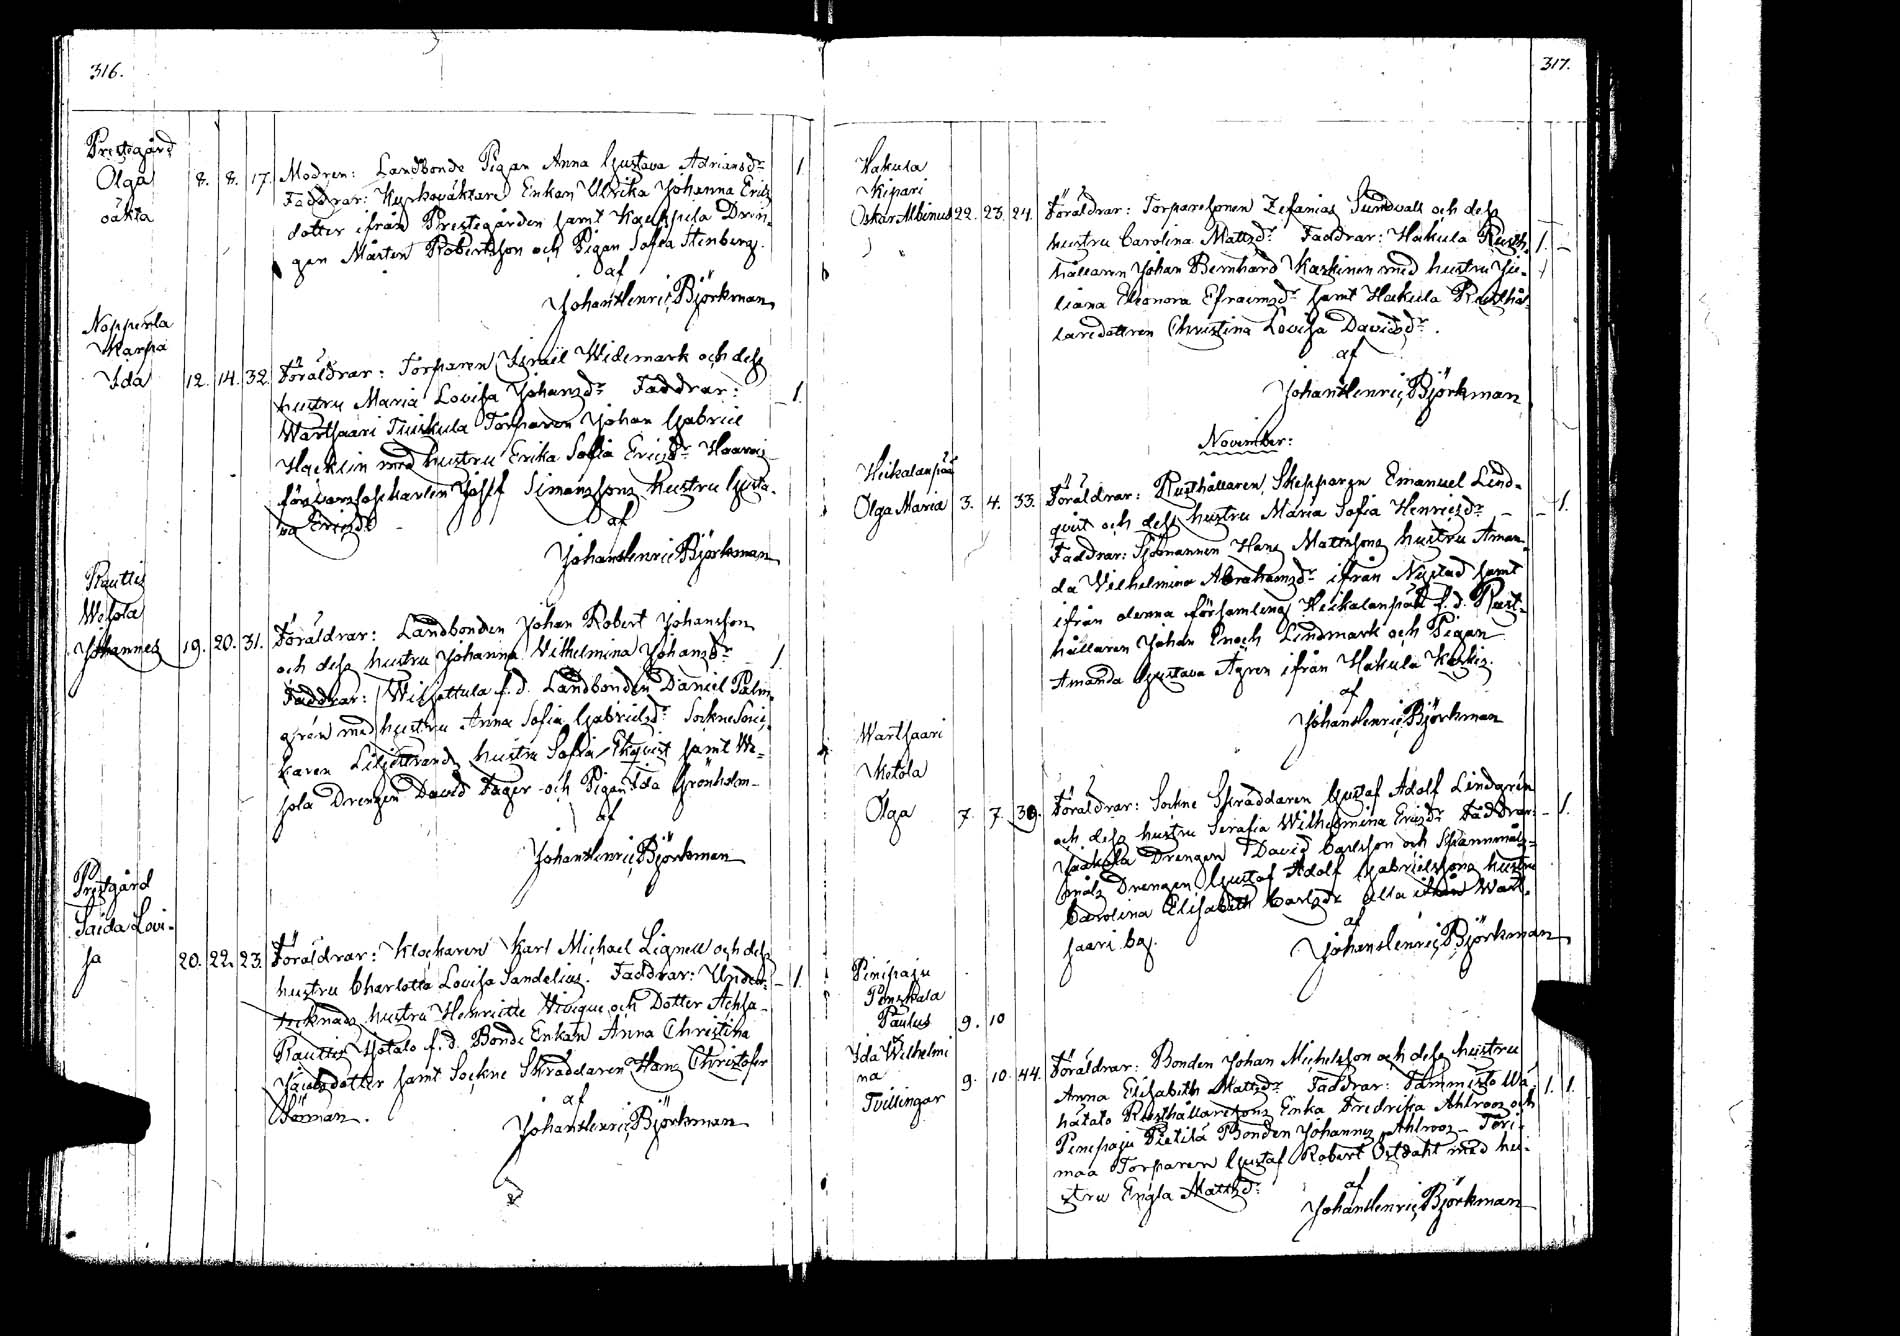 316.
Prestegård
Olga 8. 8. 17. Modren: Landbonde Pigan Anna Gustava Adriansdr 1
oäkta Faddrar: Kyrkovaktare Enkan Ulrika Johanna Erics
dotter ifrån Prestegården samt Kauppila Dren-
gen Mårten Robertsson och Pigan Sofia Stenberg.
af
Johan Henric Björkman
Nopperla
Karpa
Ida 12. 14. 32. Föräldrar: Torparen Israel Widemark och dess
hustru Maria Lovisa Johansdr Faddrar: – 1.
Wartsaari Torparen Johan Gabriel
Hacklin med hustru Erika Sofia Ericsdr
Josef Simonssons hustru Gusta-
va Ericsdr
af
Johan Henric Björkman
Rauttis
Wesola
Johannes 19. 20. 31. Föräldrar: Landbonden Johan Robert Johansson
och dess hustru Johanna Vilhelmina Johansdr – 1.
Faddrar: f. d. Landbonden Daniel Palm-
grén med hustru Anna Sofia Gabrielsdr Sockne
hustru Sofia Ekqvist samt We-
sola Drengen David Fager och Pigan Ida Grönholm
af
Johan Henric Björkman
Prestgård
Saida Lovi-
sa 20. 22. 23. Föräldrar: Klockaren Karl Michael Lignell och dess
hustru Charlotta Lovisa Sandelius. Faddrar: Under- – 1.
tecknads hustru Henriette och Dotter Achsa
Rauttis Yotalo f. d. Bonde Enkan Anna Christina
Jacobsdotter samt Sockne Skräddaren Hans Christofer
Söman.
af
Johan Henric Björkman
317.
Hakula
Kipari
Oskar Albinus 22. 23. 24. Föräldrar: Torparesonen Zefanias Sundvall och dess
hustru Carolina Mattsdr Faddrar: Hakula Rust- 1. –
hållaren Johan Bernhard Karkinen med hustru Ju-
liana Eleonora Efraimsdr samt Hakula Rusthål-
laredottren Christina Lovisa Davidsdr.
af
Johan Henric Björkman
November:
Heikalanpää
Olga Maria 3. 4. 33. Föräldrar: Rusthållaren, Skepparen Emanuel Lind- – 1.
qvist och dess hustru Maria Sofia Henricsdr –
Faddrar: Sjömannen Hans Mattssons hustru Aman-
da Wilhelmina Abrahamsdr ifrån Nystad samt
ifrån denna församling Heikalanpää f. d. Rust-
hållaren Johan Enoch Lindmark och Pigan
Amanda Gustava Ågren ifrån Hakula
af
Johan Henric Björkman
Wartsaari
Ketola
Olga 7. 7. 39. Föräldrar: Sockne Skräddaren Gustaf Adolf Lindgrén – 1.
och dess hustru Serafia Wilhelmina Ericsdr Faddrar:
Jaakola Drengen David Carlsson och
Drengen Gustaf Adolf Gabrielssons hustru
Carolina Elisabeth Carlsdr alla Wart-
saari by.
af
Johan Henric Björkman
Pinipaju
Penskala
Paulus 9. 10
Ida Wilhelmi
na 9. 10. 44. Föräldrar: Bonden Johan Michelsson och dess hustru
Tvillingar Anna Elisabeth Mattsdr Faddrar: Tammisto Wä- 1. 1.
hätalo Rusthållaresons Enka Fredrika Ahlroos och
Pinipaju Pietilä Bonden Johannes Ahlroos – Töri-
maa Torparen Gustaf Robert Östdahl med hu-
stru Engla Mattsdr
af
Johan Henric Björkman